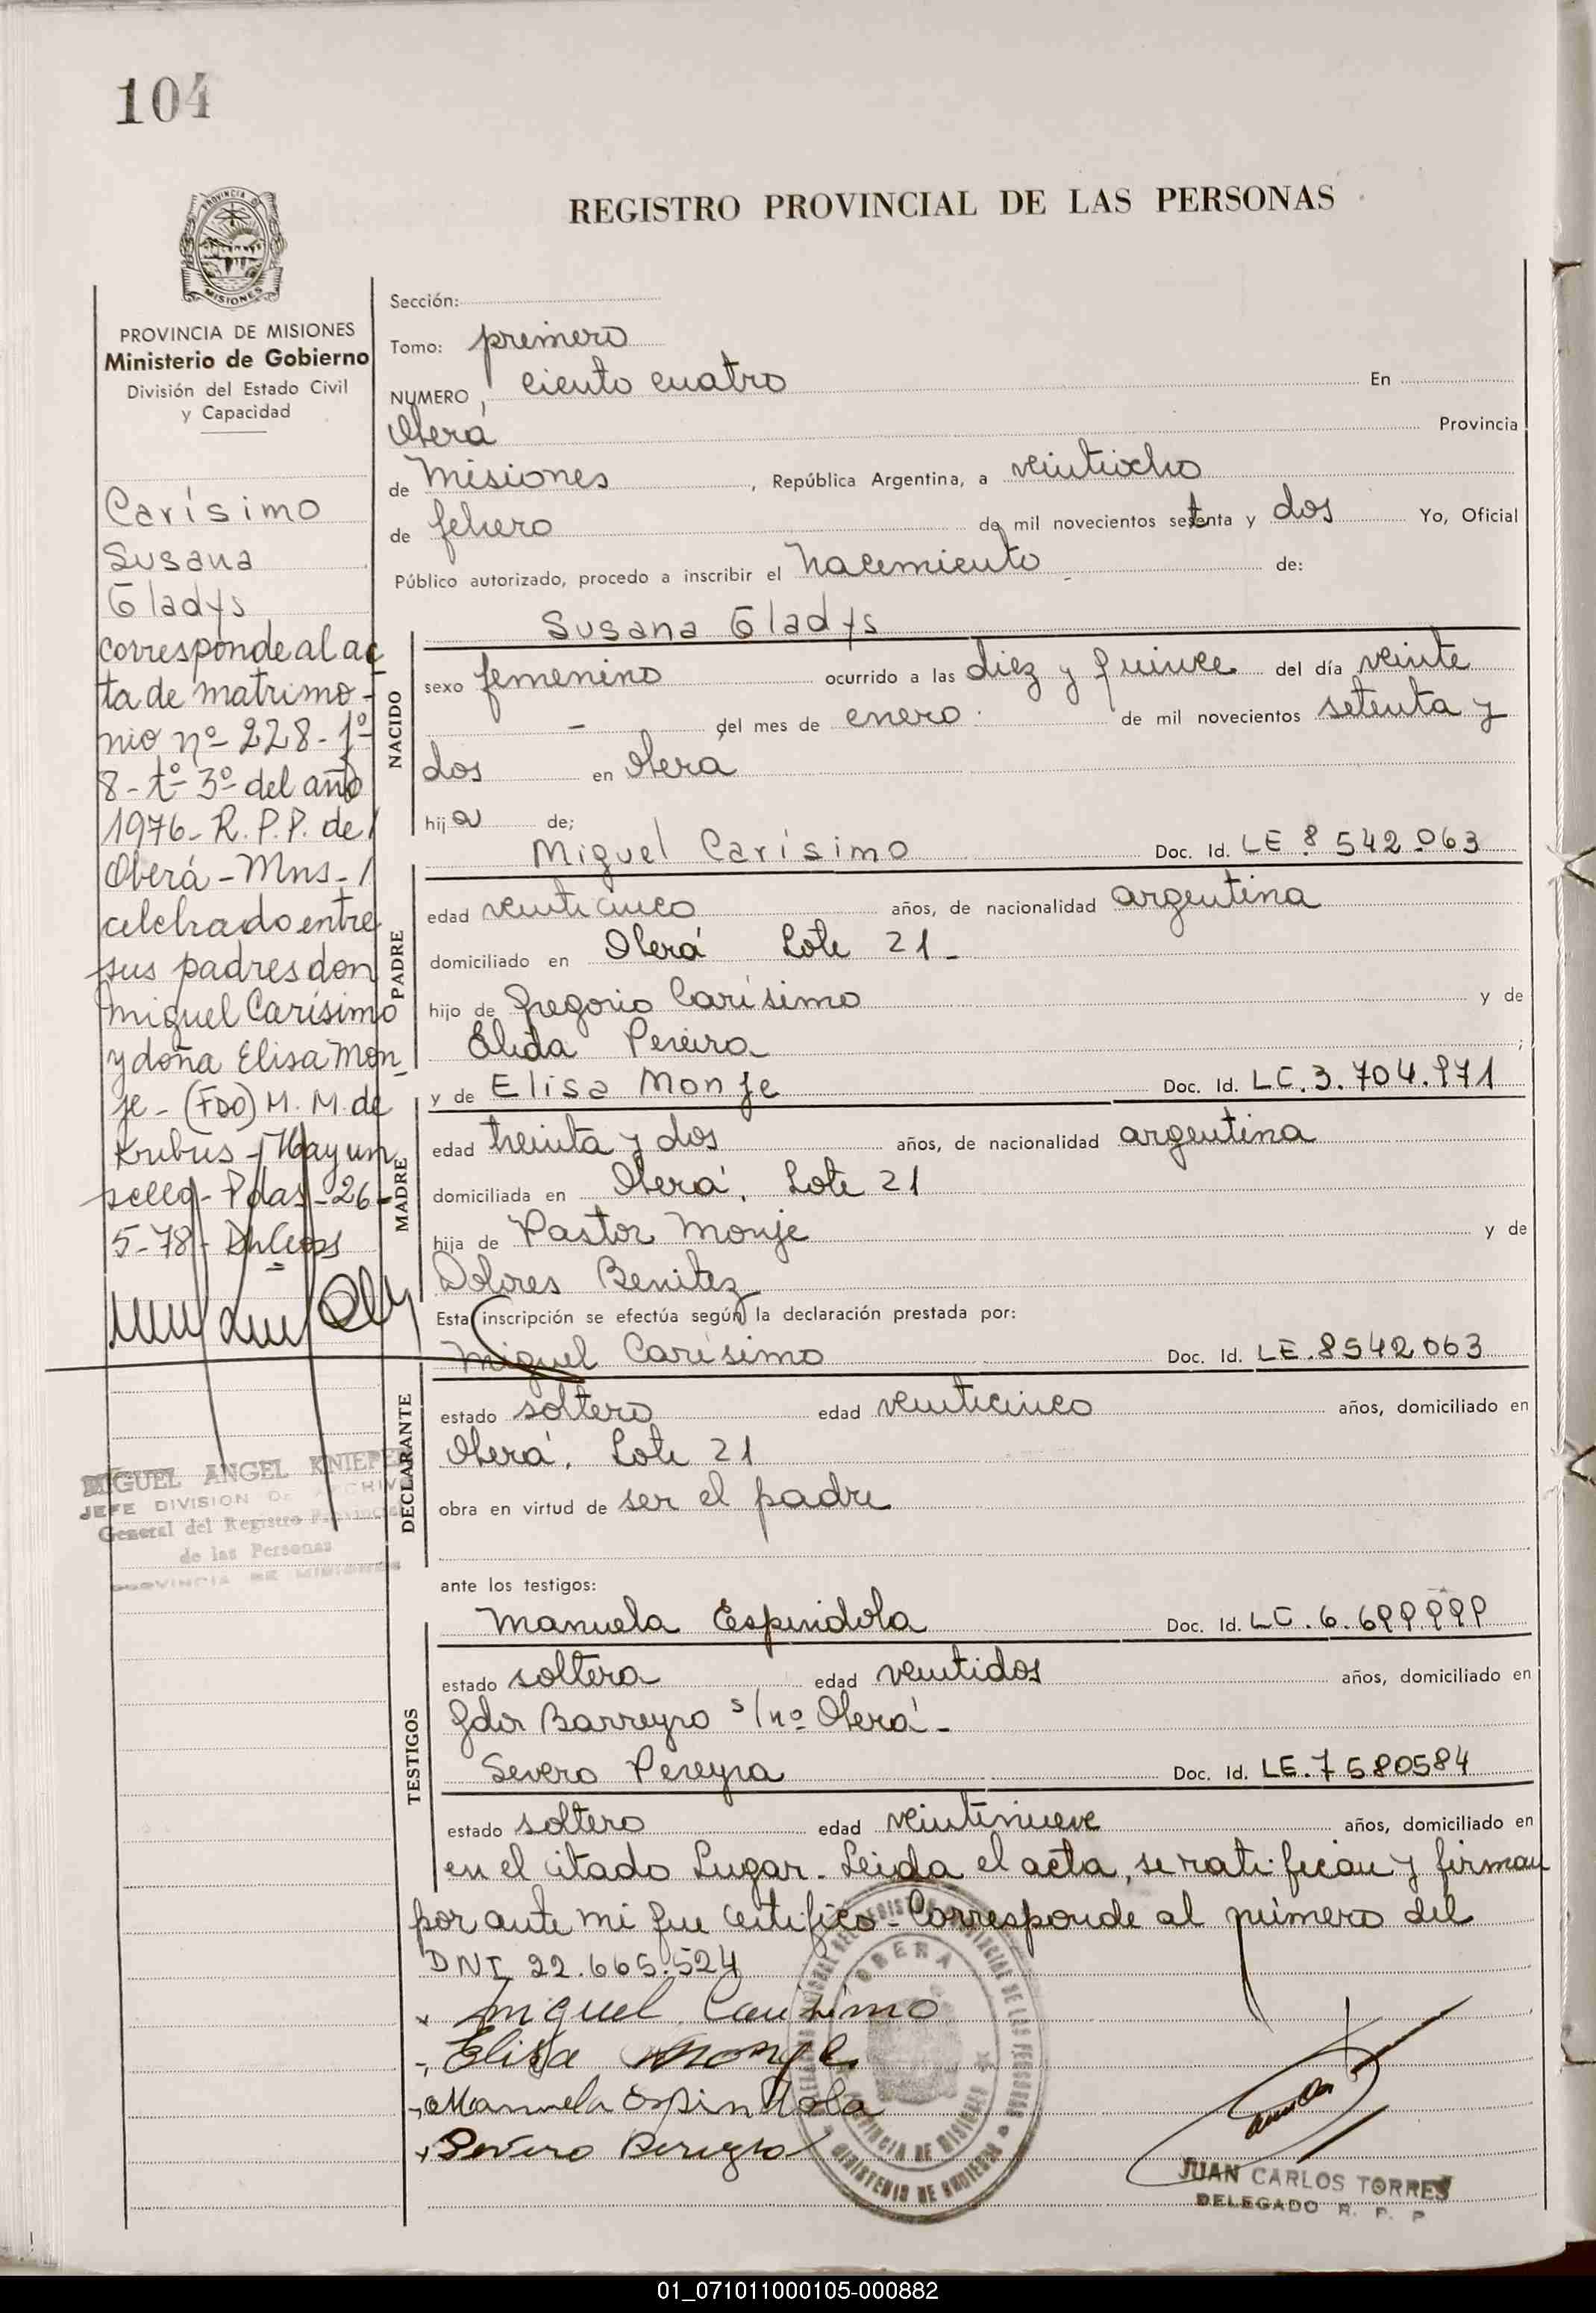 104
PROVINCIA DE
MISIONES
REGISTRO PROVINCIAL DE LAS PERSONAS
PROVINCIA DE MISIONES
Ministerio de Gobierno
División del Estado Civil
y Capacidad
Carísimo
Susana
Gladys
corresponde al ac
ta de matrimo-
nio nº 228-fº
8-tº 3º del año
1976-R.P.P. de/
Oberá-Mns-/
celebrado entre
sus padres don
Miguel Carísimo
y doña Elisa Mon
je-(FDO) M. M. de
Pdas-26-
5-78-
MIGUEL ANGEL
JEFE DIVISION DE ARCHIVO
General del Registro Provincial
de las Personas
PROVINCIA DE MISIONES
Sección:
Tomo: primero
NUMERO ciento cuatro En
Oberá Provincia
de Misiones, República Argentina, a veintiocho
de febrero de mil novecientos setenta y dos Yo, Oficial
Público autorizado, procedo a inscribir el nacimiento de:
Susana Gladys
NACIDO
sexo femenino ocurrido a las diez y quince del día veinte
- del mes de enero de mil novecientos setenta y
dos en Oberá
hija de;
Miguel Carísimo Doc. Id. LE 8542.063
PADRE
edad veinticinco años, de nacionalidad argentina
domiciliado en Oberá Lote 21-
hijo de Gregorio Carísimo y de
Elida Pereira;
y de Elisa Monje Doc. Id. LC.3.704.971
MADRE
edad treinta y dos años, de nacionalidad argentina
domiciliada en Oberá. Lote 21
hija de Pastor Monje y de
Dolores Benitez
Esta inscripción se efectúa según la declaración prestada por:
Miguel Carísimo Doc. Id. LE.8542063
DECLARANTE
estado soltero edad veinticinco años, domiciliado en
Oberá. Lote 21
obra en virtud de ser el padre
ante los testigos:
Manuela Espindola Doc. Id. LC.6.699.999
TESTIGOS
estado soltera edad ventidos años, domiciliado en
Gdor Barreyro s/nº Oberá-
Severo Pereyra Doc. Id. LE.7580584
estado soltero edad veintinueve años, domiciliado en
en el citado Lugar-Leida el acta, se ratifican y firman
por ante mi que certifico-Corresponde al número del
DNI 22.665.524
Miguel Carisimo
Elisa Monje
Manuela Espindola
Severo Pereyra
OBERA
PROVINCIA DE MISIONES
MINISTERIO DE GOBIERNO
JUAN CARLOS TORRES
DELEGADO R. P. P
01_071011000105-000882